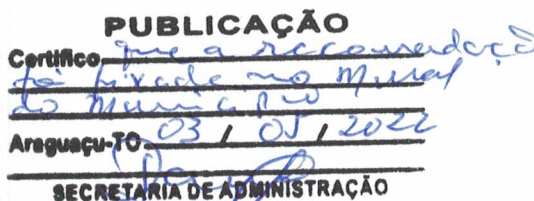 PUBLICAÇÃO
Certifico que a recomendação
foi fixada no Mural
do Município
Araguaçu-TO 03 / 05 / 2022
SECRETARIA DE ADMINISTRAÇÃO